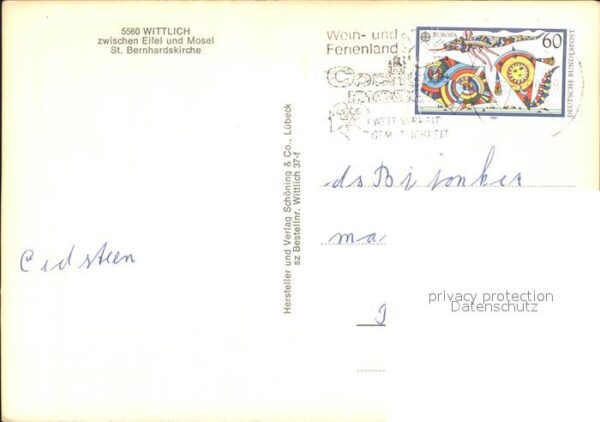 5560 WITTLICH
zwischen Eifel und Mosel
St. Bernhardskirche
Wein- und
Ferienland
EUROPA
60
DEUTSCHE BUNDESPOST
Hersteller und Verlag Schöning & Co., Lübeck
sz Bestellnr. Wittlich 37-f
ds Bijonker
ma
privacy protection
Datenschutz